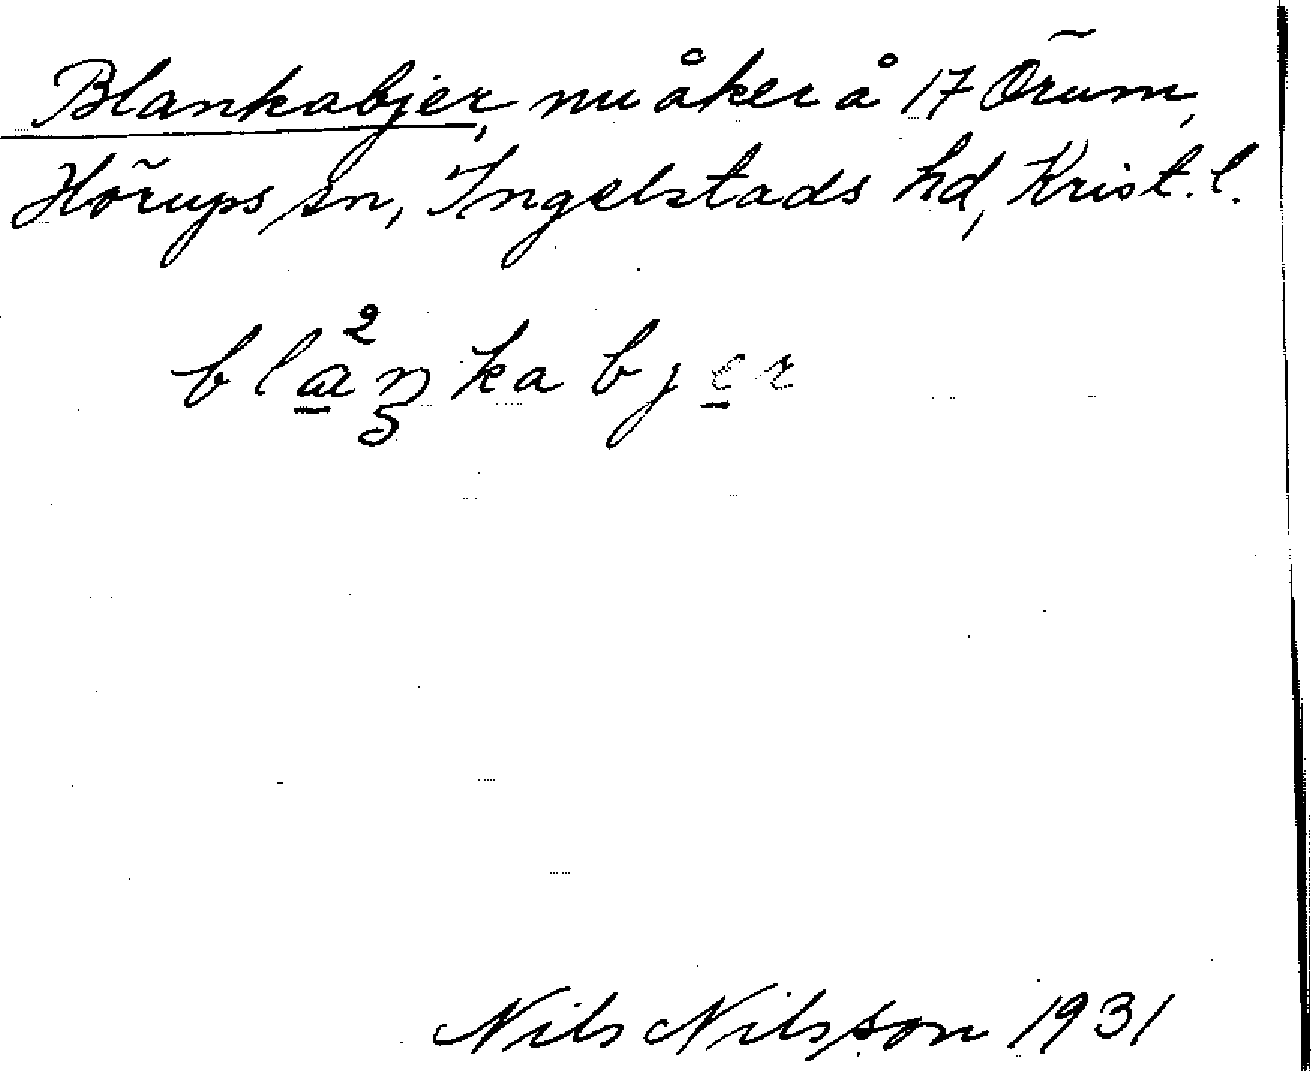 Blankabjer, nu åker å 17 Örum,
Hörups sn, Ingelstads hd, Krist. l.
bla²ŋkabjer
Nils Nilsson 1931